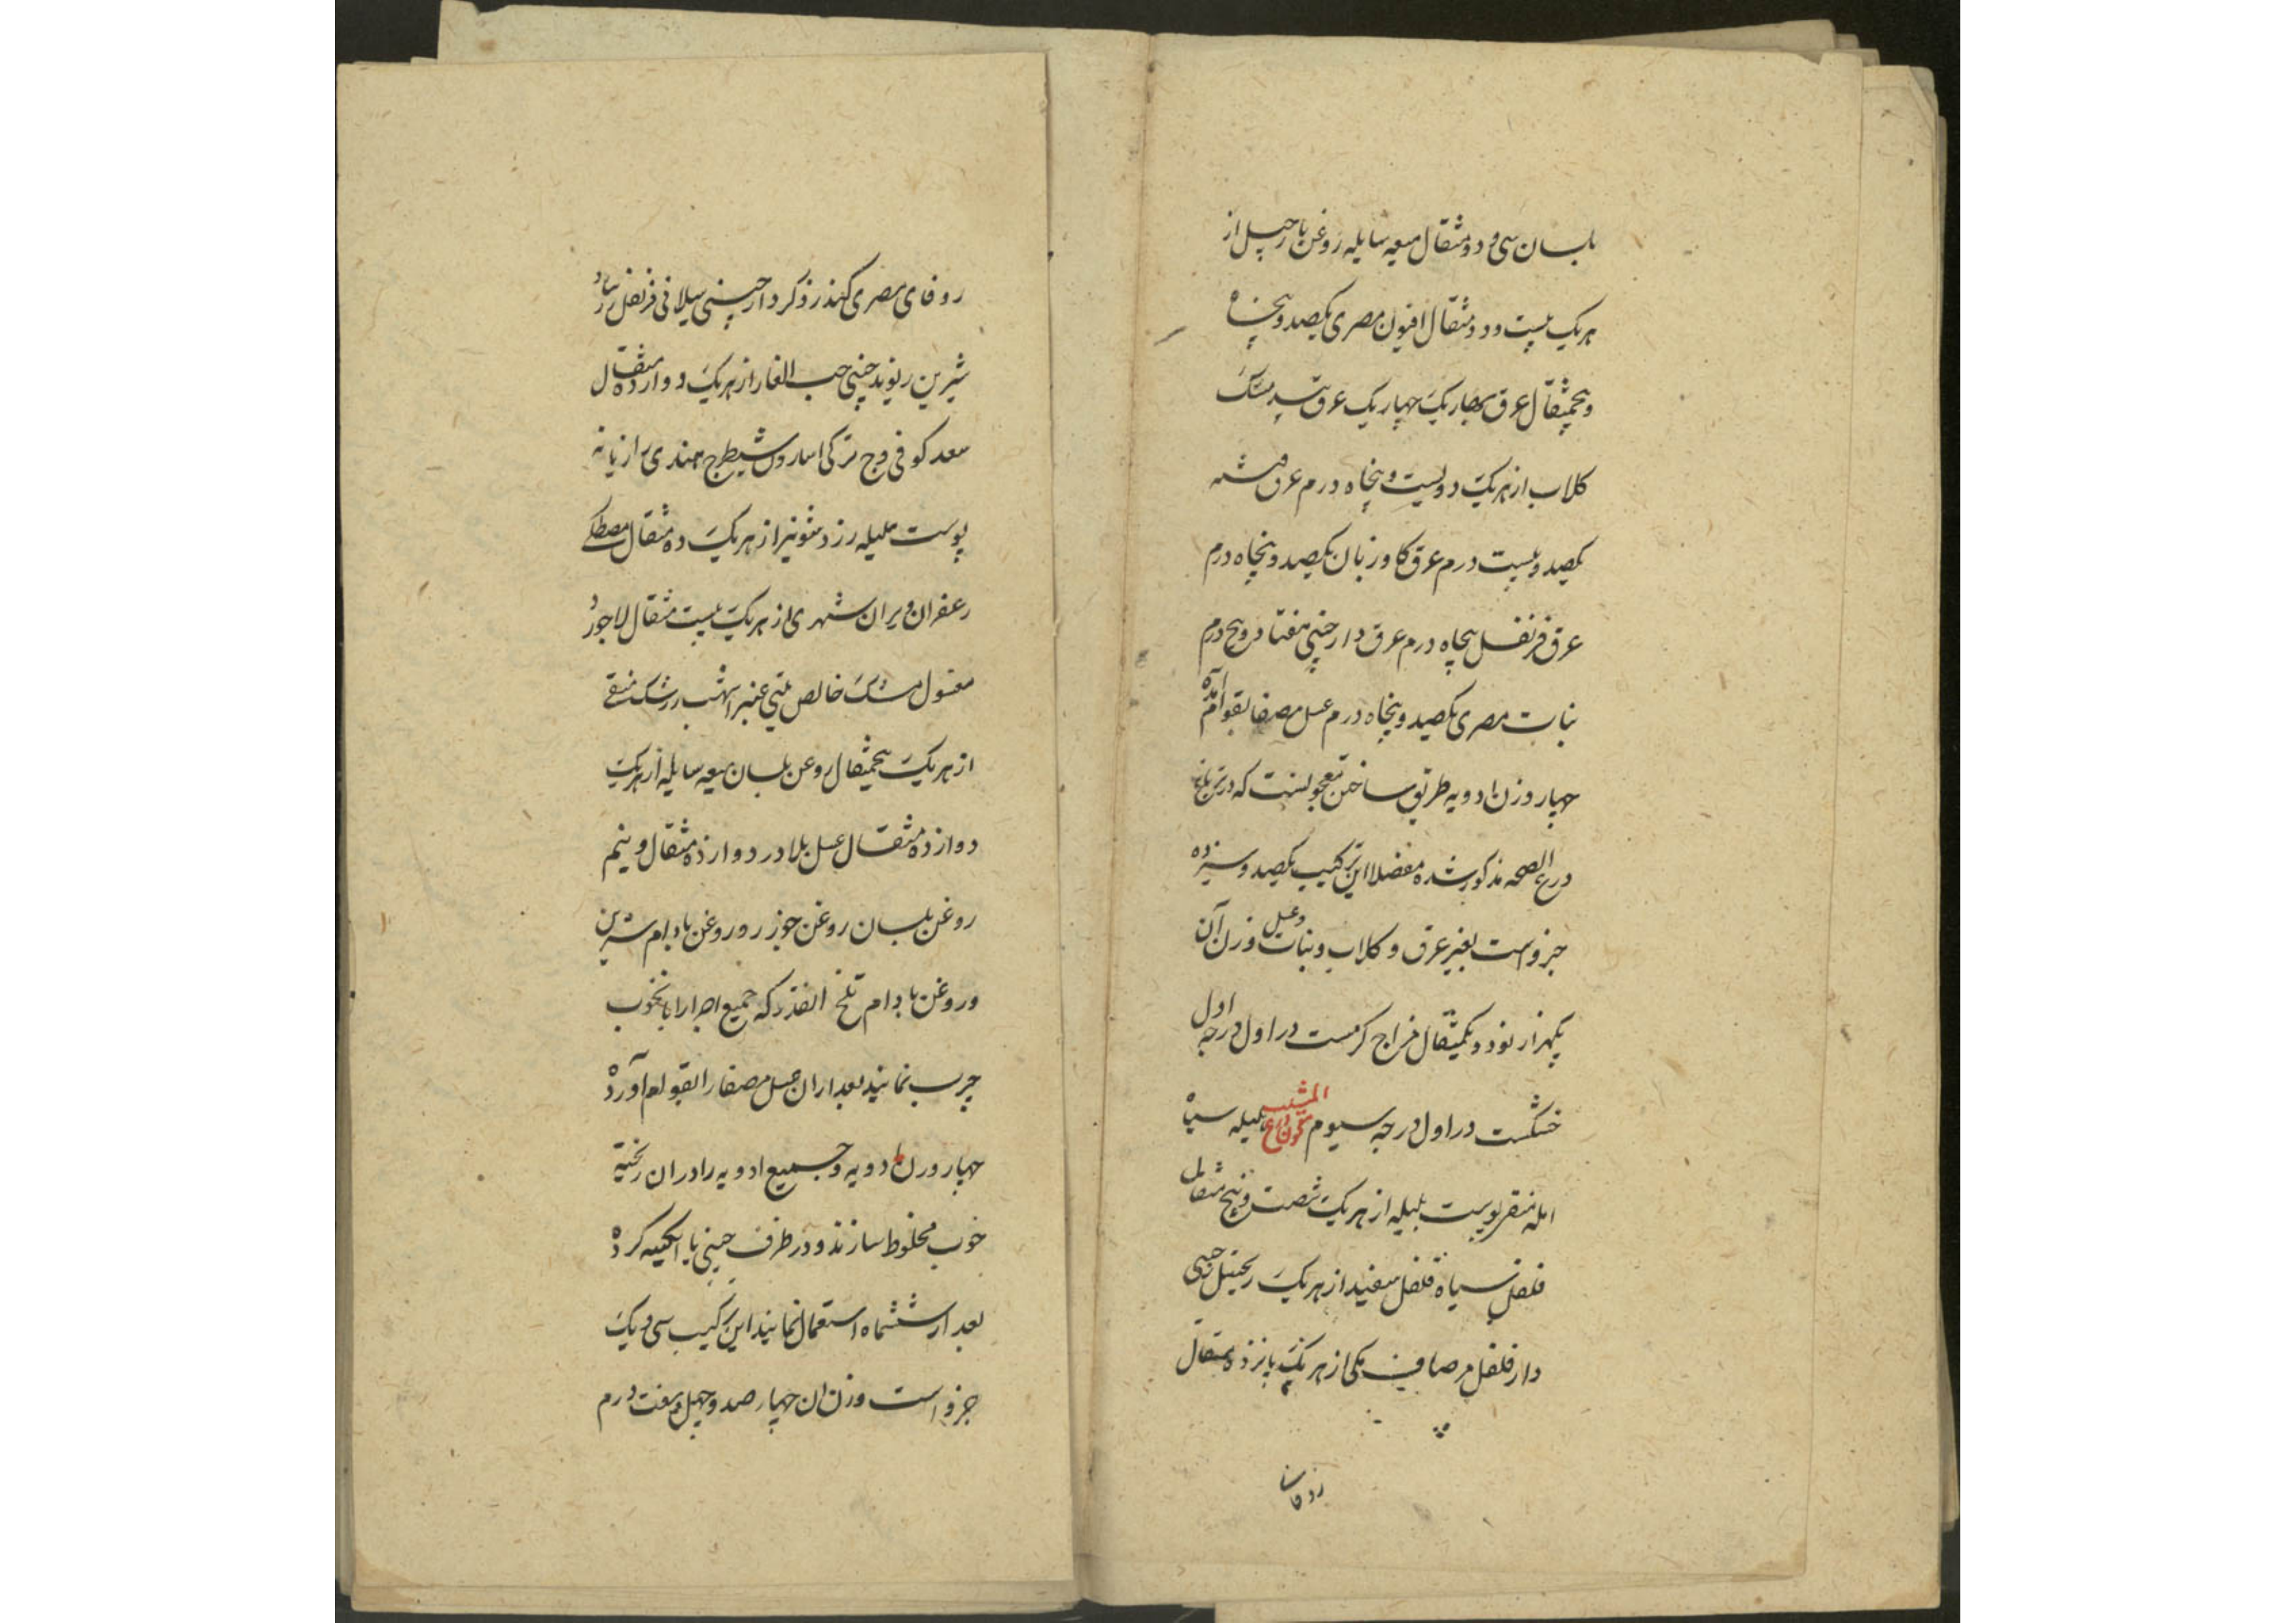 بلسان سی و دو مثقال میعه سایله روغن نارجیل از
هریک بیست و دو مثقال افیون مصری یکصد و پنجاه
و پنجمثقال عرق بهار یک چهار یک عرق بید مشک
کلاب از هریک دویست و پنجاه درم عرق
یکصد و بیست درم عرق کاو زبان یکصد و پنجاه درم
عرق قرنفل پنجاه درم عرق دارچینی هفتاد و پنج درم
نبات مصری یکصد و پنجاه درم عسل مصفا بقوام آمده
چهار وزن ادویه طریق ساختن معجونست که در
الصحه مذکور شده مفصلا این ترکیب یکصد و سیزده
جزو است بغیر عرق و کلاب و نبات و عسل وزن آن
یکهزار نود و یکمثقال مزاج کرمست در اول درجه اول
خشکست در اول درجه سیوم معجون هلیله سیاه
امله منقر پوست بلیله از هریک شصت و پنج مثقال
فلفل سیاه فلفل سفید از هریک زنجبیل چینی
دارفلفل مر صاف مکی از هریک پانزده مثقال
زوفا
زوفای مصری کندر ذکر دارچینی سیلانی قرنفل زرنباد
شیرین ریوند چینی حب الغار از هریک دوازده مثقال
سعد کوفی وج ترکی اسارون شیطرج هندی رازیانه
پوست هلیله زرد شونیز از هریک ده مثقال مصطکی
زعفران ویران شهری از هریک بیست مثقال لاجورد
مغسول مشک خالص تبتی عنبر اشهب زرشک منقی
از هریک پنجمثقال روغن بلسان میعه سایله از هریک
دوازده مثقال عسل بلادر دوازده مثقال و نیم
روغن بلسان روغن جوز و روغن بادام شیرین
و روغن بادام تلخ انقدر که جمیع اجزا را بانخوب
چرب نمایند بعد ازان عسل مصفا را بقوام آورده
چهار وزن ادویه و جمیع ادویه را دران ریخته
خوب مخلوط سازند و در ظرف چینی یا ابکینه کرده
بعد از ششماه استعمال نمایند این ترکیب سی و یک
جزو است وزن ان چهار صد و چهل و هفت درم